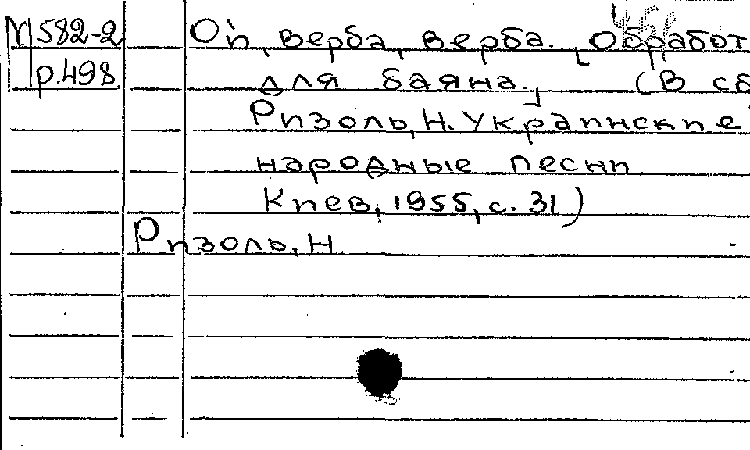 М 582-2
р.498
Ой, верба, верба. [Обработ
для баяна.] (В сб
Ризоль, Н. Украинские
народные песни
Киев, 1955, с. 31)
Ризоль, Н.